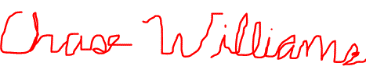 Chase Williams